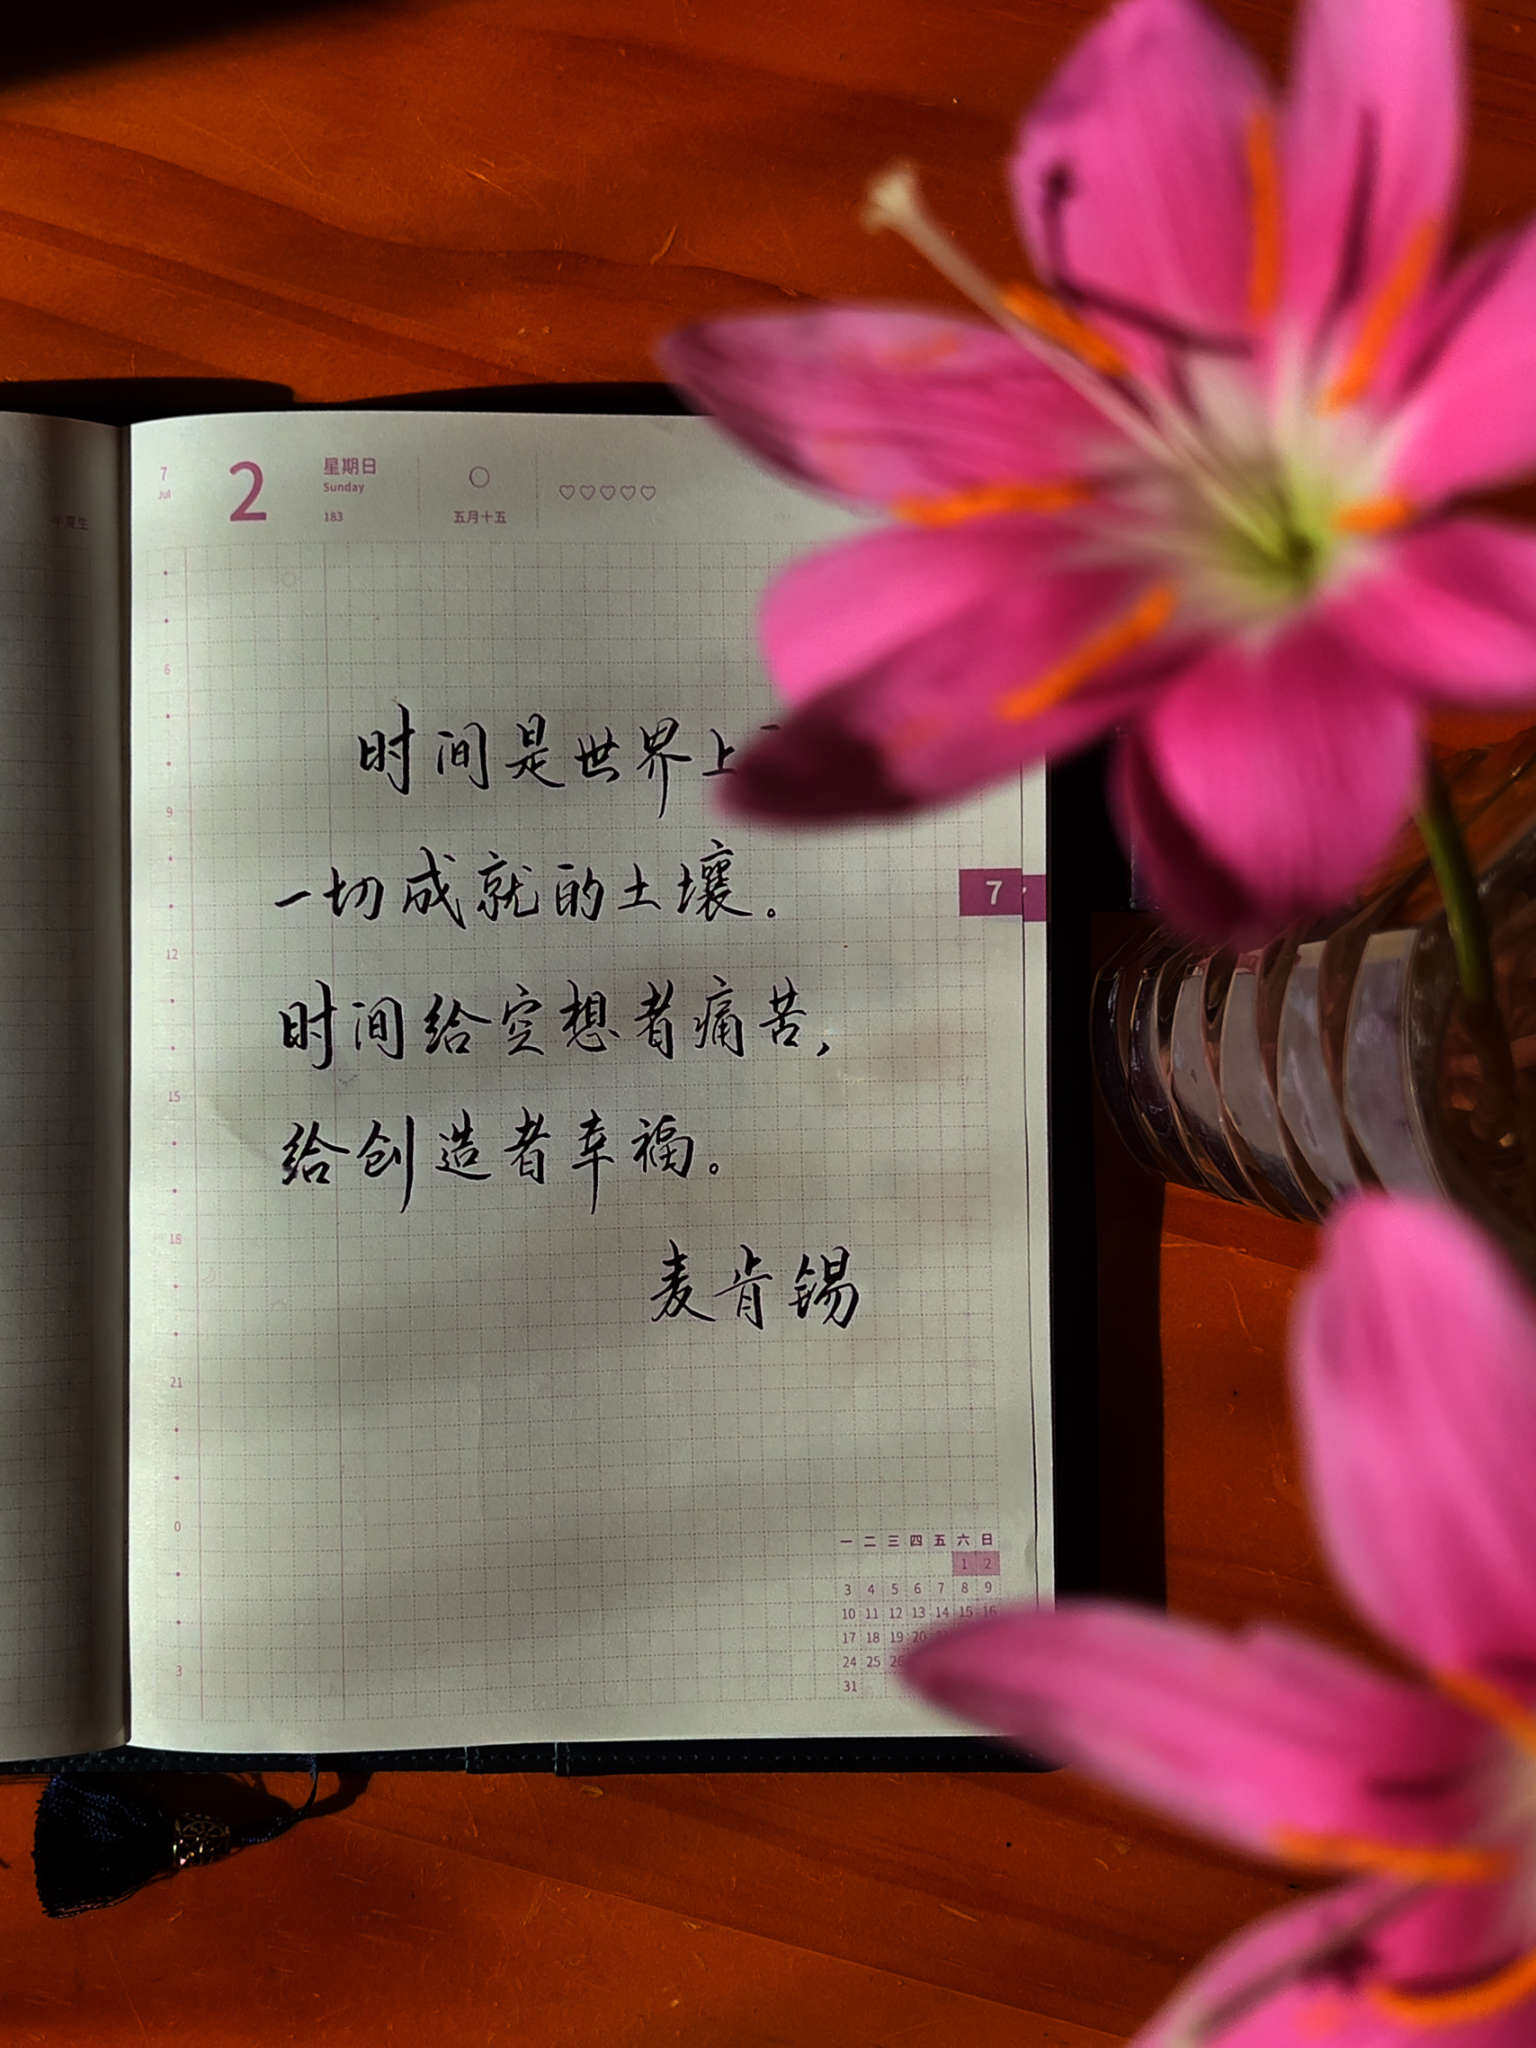 7
Jul
2
星期日
Sunday
183
五月十五
半夏生
时间是世界上
一切成就的土壤。
时间给空想者痛苦，
给创造者幸福。
麦肯锡
7
6
9
12
15
18
21
0
3
一 二 三 四 五 六 日
1 2
3 4 5 6 7 8 9
10 11 12 13 14 15 16
17 18 19 20
24 25 26
31